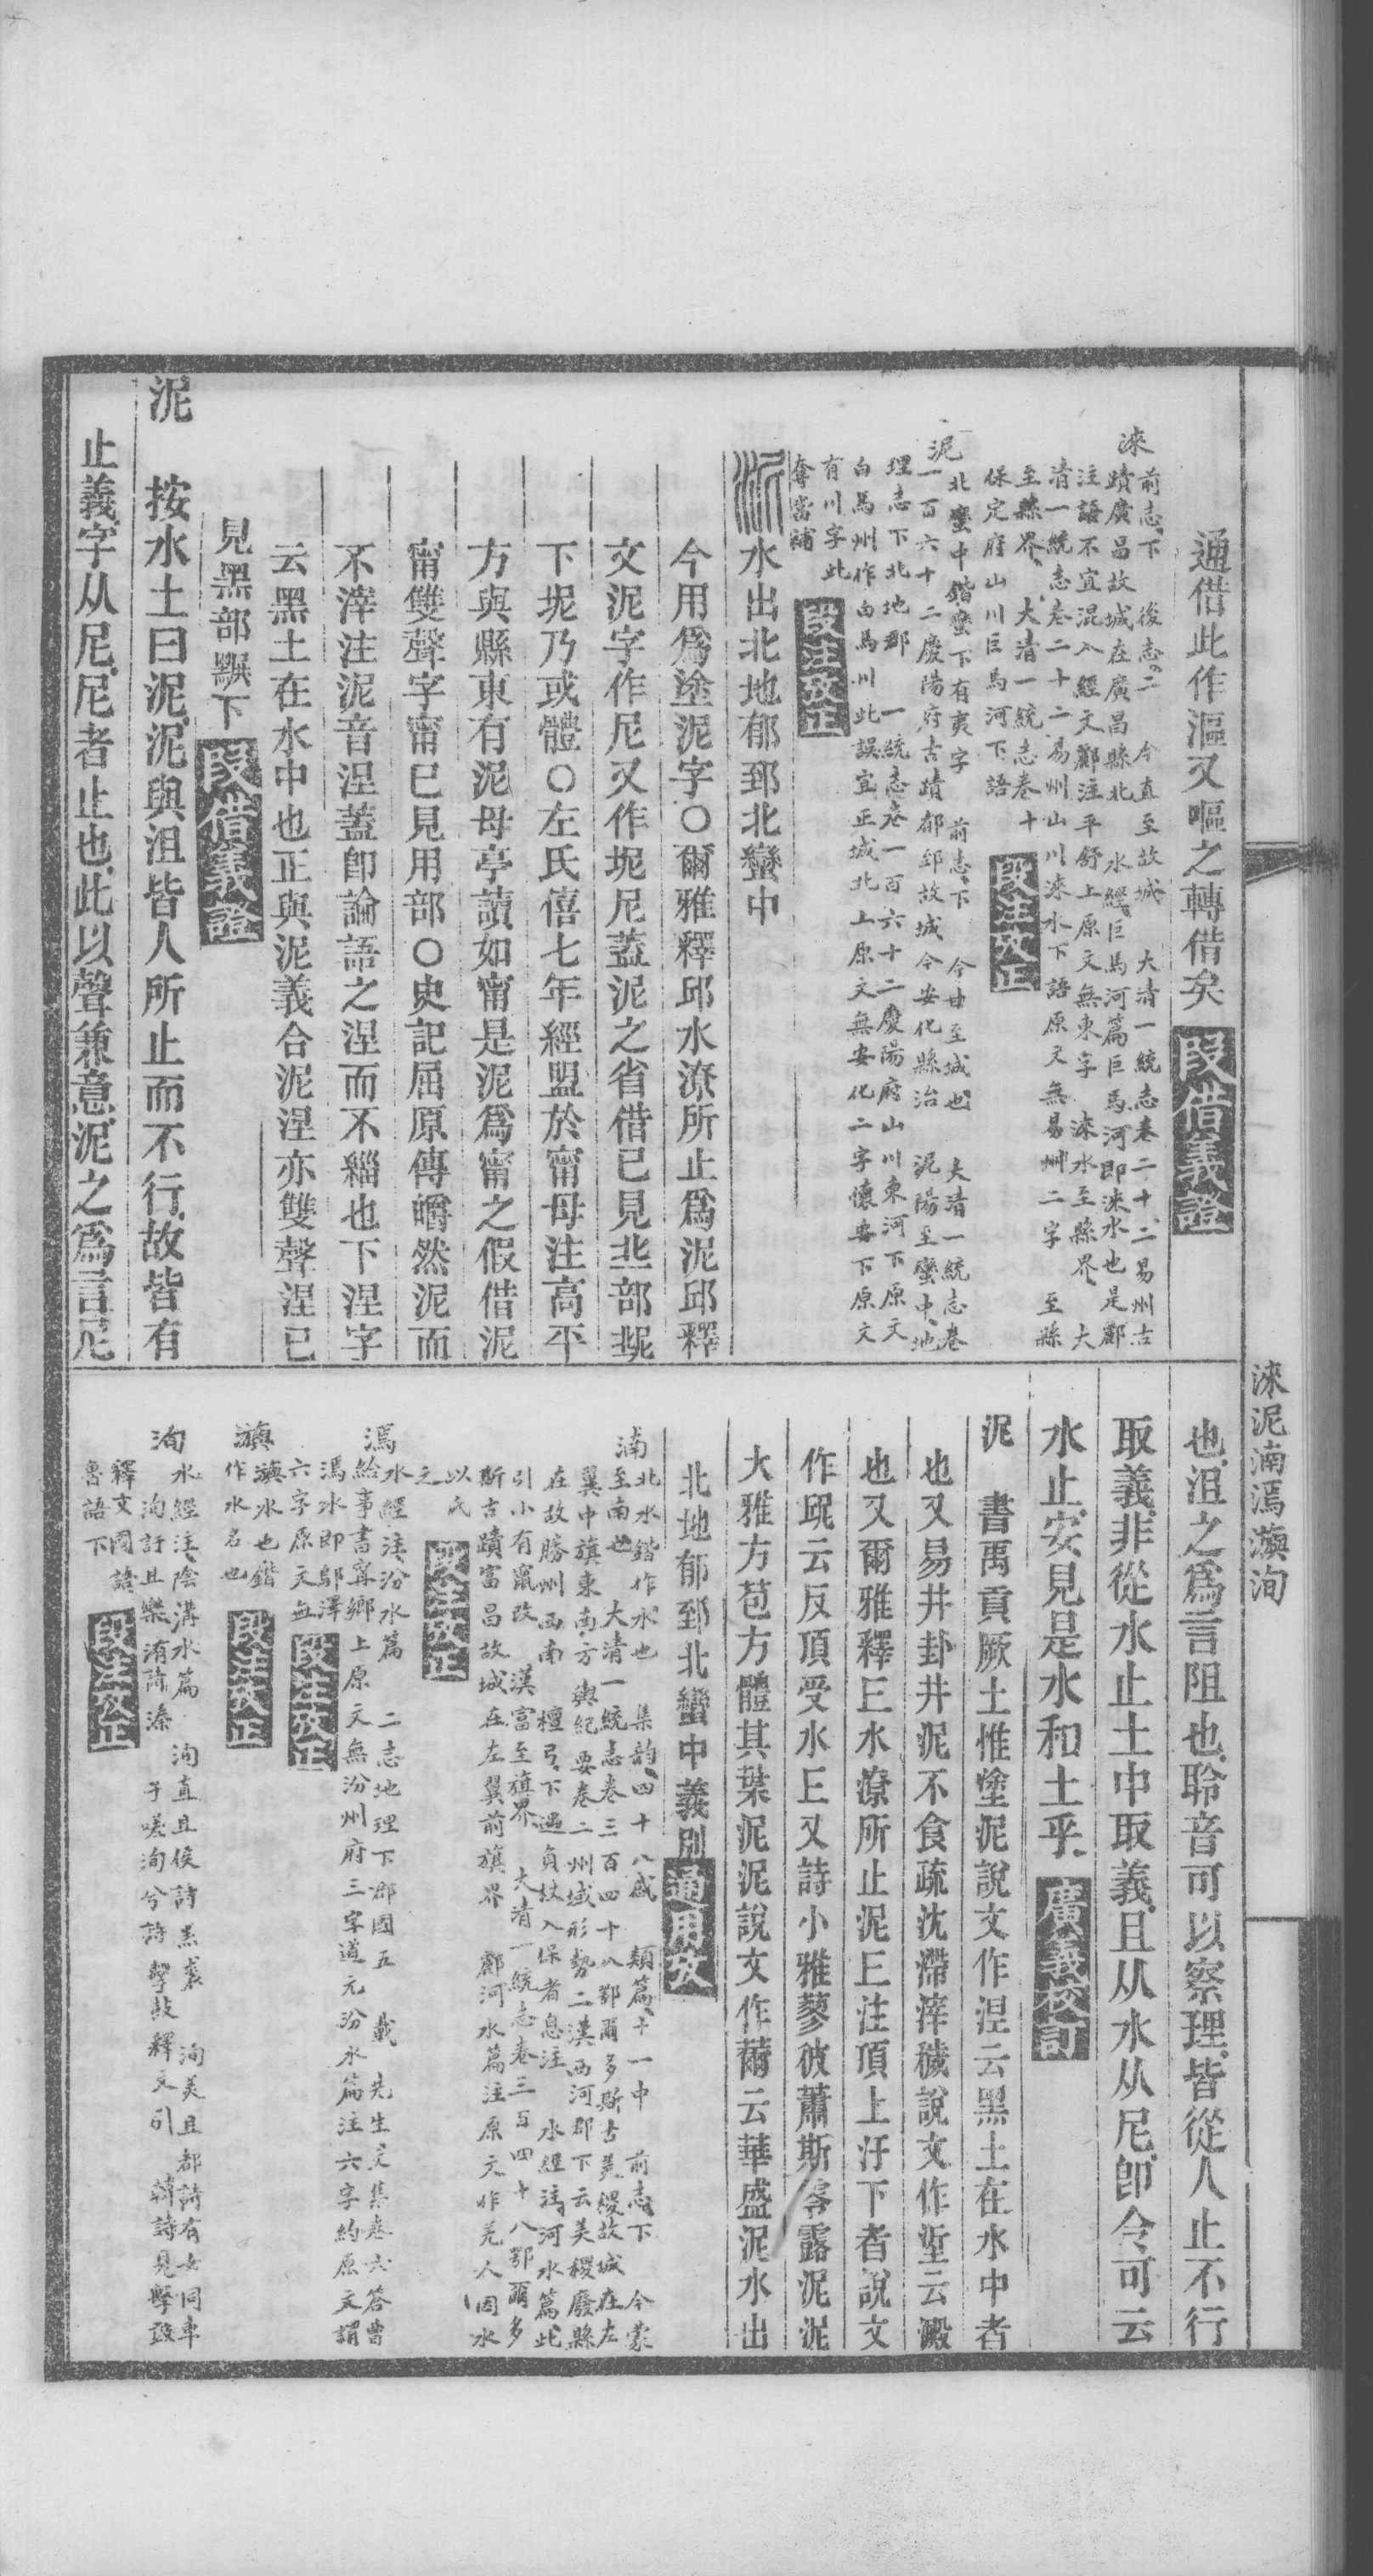 通借此作漚又嘔之轉借矣 段借義證
淶 前志下 後志二 今直至故城 大清一統志卷二十二易州古
蹟廣昌故城在廣昌縣北 水經巨馬河篇巨馬河即淶水也是酈
注語不宜混入經文酈注平舒上原文無東字 淶水至縣界 大
清一統志卷二十二易州山川淶水下語原文無易州二字 至縣
至縣界 大清一統志卷十
保定府山川巨馬河下語 段注攷正
泥 北蠻中鍇蠻下有夷字 前志下 今甘至城也 大清一統志卷
一百六十二慶陽府古蹟郁郅故城今安化縣治 泥陽至蠻中 地
理志下北地郡 一統志卷一百六十二慶陽府山川東河下原文
白馬州作白馬川此誤宜正城北上原文無安化二字懷安下原文
有川字此
奪當補 段注攷正
水出北地郁郅北蠻中
今用爲塗泥字〇爾雅釋邱水潦所止爲泥邱釋
文泥字作尼又作坭尼蓋泥之省借已見北部
下坭乃或體〇左氏僖七年經盟於甯母注高平
方與縣東有泥母亭讀如甯是泥爲甯之假借泥
甯雙聲字甯已見用部〇史記屈原傳皭然泥而
不滓注泥音涅蓋卽論語之涅而不緇也下涅字
云黑土在水中也正與泥義合泥涅亦雙聲涅已
見黑部下 段借義證
泥 按水土曰泥泥與沮皆人所止而不行故皆有
止義字从尼尼者止也此以聲兼意泥之爲言尼
淶泥湳漹㶛洵
也沮之爲言阻也聆音可以察理皆從人止不行
取義非從水止土中取義且从水从尼卽令可云
水止安見是水和土乎 廣義校訂
泥 書禹貢厥土惟塗泥說文作涅云黑土在水中者
也又易井卦井泥不食疏沈滯滓穢說文作埿云澱
也又爾雅釋丘水潦所止泥丘注頂上汙下者說文
作𡰥云反頂受水丘又詩小雅蓼彼蕭斯零露泥泥
大雅方苞方體其葉泥泥說文作薾云華盛泥水出
北地郁郅北蠻中義別 通用文
湳 北水鍇作水也 集韵四十八感 類篇十一中 前志下 今蒙
至南也 大清一統志卷三百四十八鄂爾多斯古美稷故城在左
翼中旗東南方輿紀要卷二州域形勢二漢西河郡下云美稷廢縣
在故勝州西南 檀弓下遇負杖入保者息注 水經注河水篇此
引小有竄改 漢富至旗界 大清一統志卷三百四十八鄂爾多
斯古蹟富昌故城在左翼前旗界 酈河水篇注原文作羌人因水
以氏
之 段注攷正
漹 水經注汾水篇 二志地理下郡國五 戴先生文集卷六答曹
給事書寧鄉上原文無汾州府三字道元汾水篇注六字約原文謂
漹水即鄔澤
六字原文無 段注攷正
㶛 㶛水也鍇
作水名也 段注攷正
洵 水經注陰溝水篇 洵直且侯詩羔裘 洵美且都詩有女同車
洵訏且樂洧詩溱 于嗟洵兮詩擊鼓釋文引 韓詩見擊鼓
釋文國語
魯語下 段注攷正